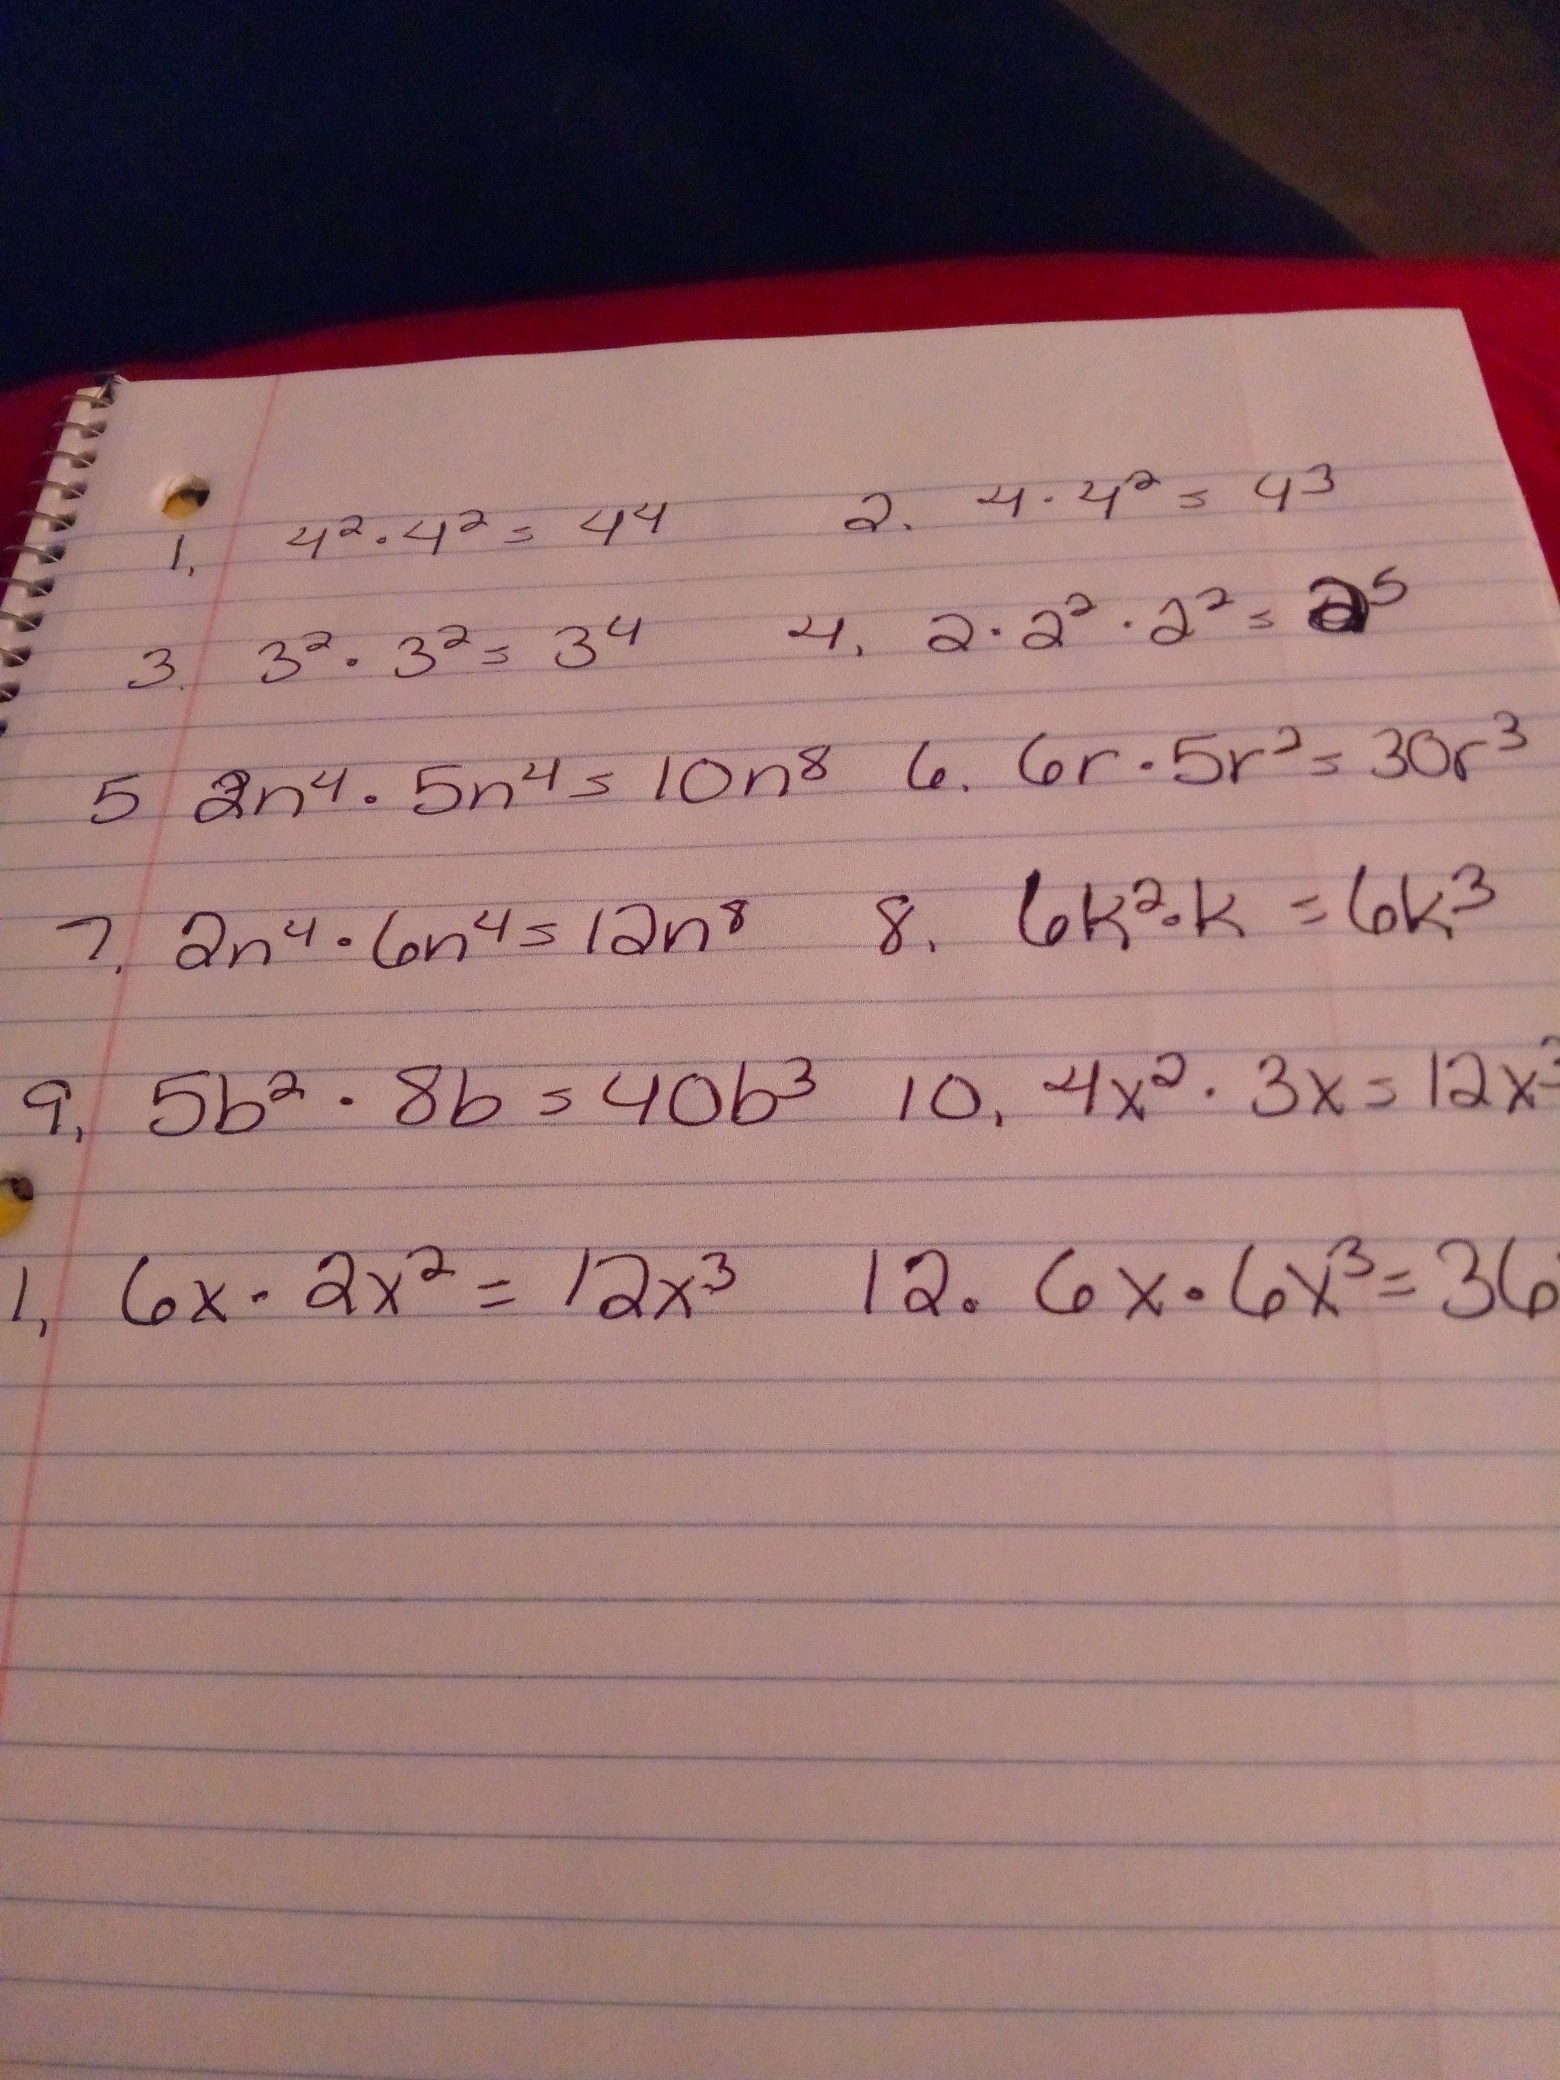 1. 4²·4² = 4⁴ 2. 4·4² = 4³
3. 3²·3² = 3⁴ 4. 2·2²·2² = 2⁵
5 2n⁴·5n⁴ = 10n⁸ 6. 6r·5r² = 30r³
7. 2n⁴·6n⁴ = 12n⁸ 8. 6k²·k = 6k³
9. 5b²·8b = 40b³ 10. 4x²·3x = 12x³
1. 6x·2x² = 12x³ 12. 6x·6x³ = 36